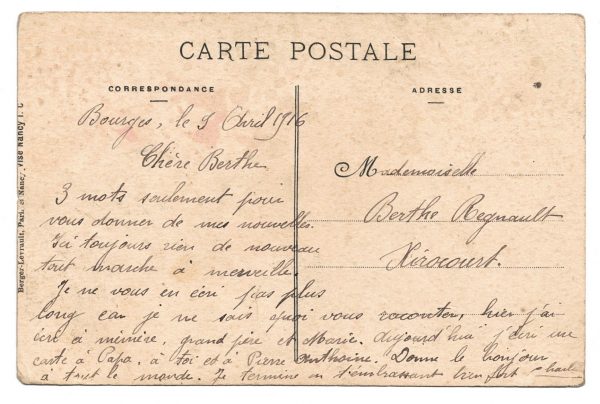 CARTE POSTALE
CORRESPONDANCE
ADRESSE
Berger-Levrault, Paris & Nancy, Visé Nancy
Bourges, le 9 Avril 1916
Chère Berthe
3 mots seulement pour
vous donner de mes nouvelles.
Ici toujours rien de nouveau
tout marche à merveille.
Je ne vous en écri pas plus
long car je ne sais quoi vous raconter, hier j'ai
écri à mémère, grand père et Marie. aujourd'hui j'écri une
carte à Papa. à toi et à Pierre Anthoine. Donne le bonjour
à tout le monde. Je termine en t'embrassant bien fort
Mademoiselle
Berthe Regnault
Xirocourt.